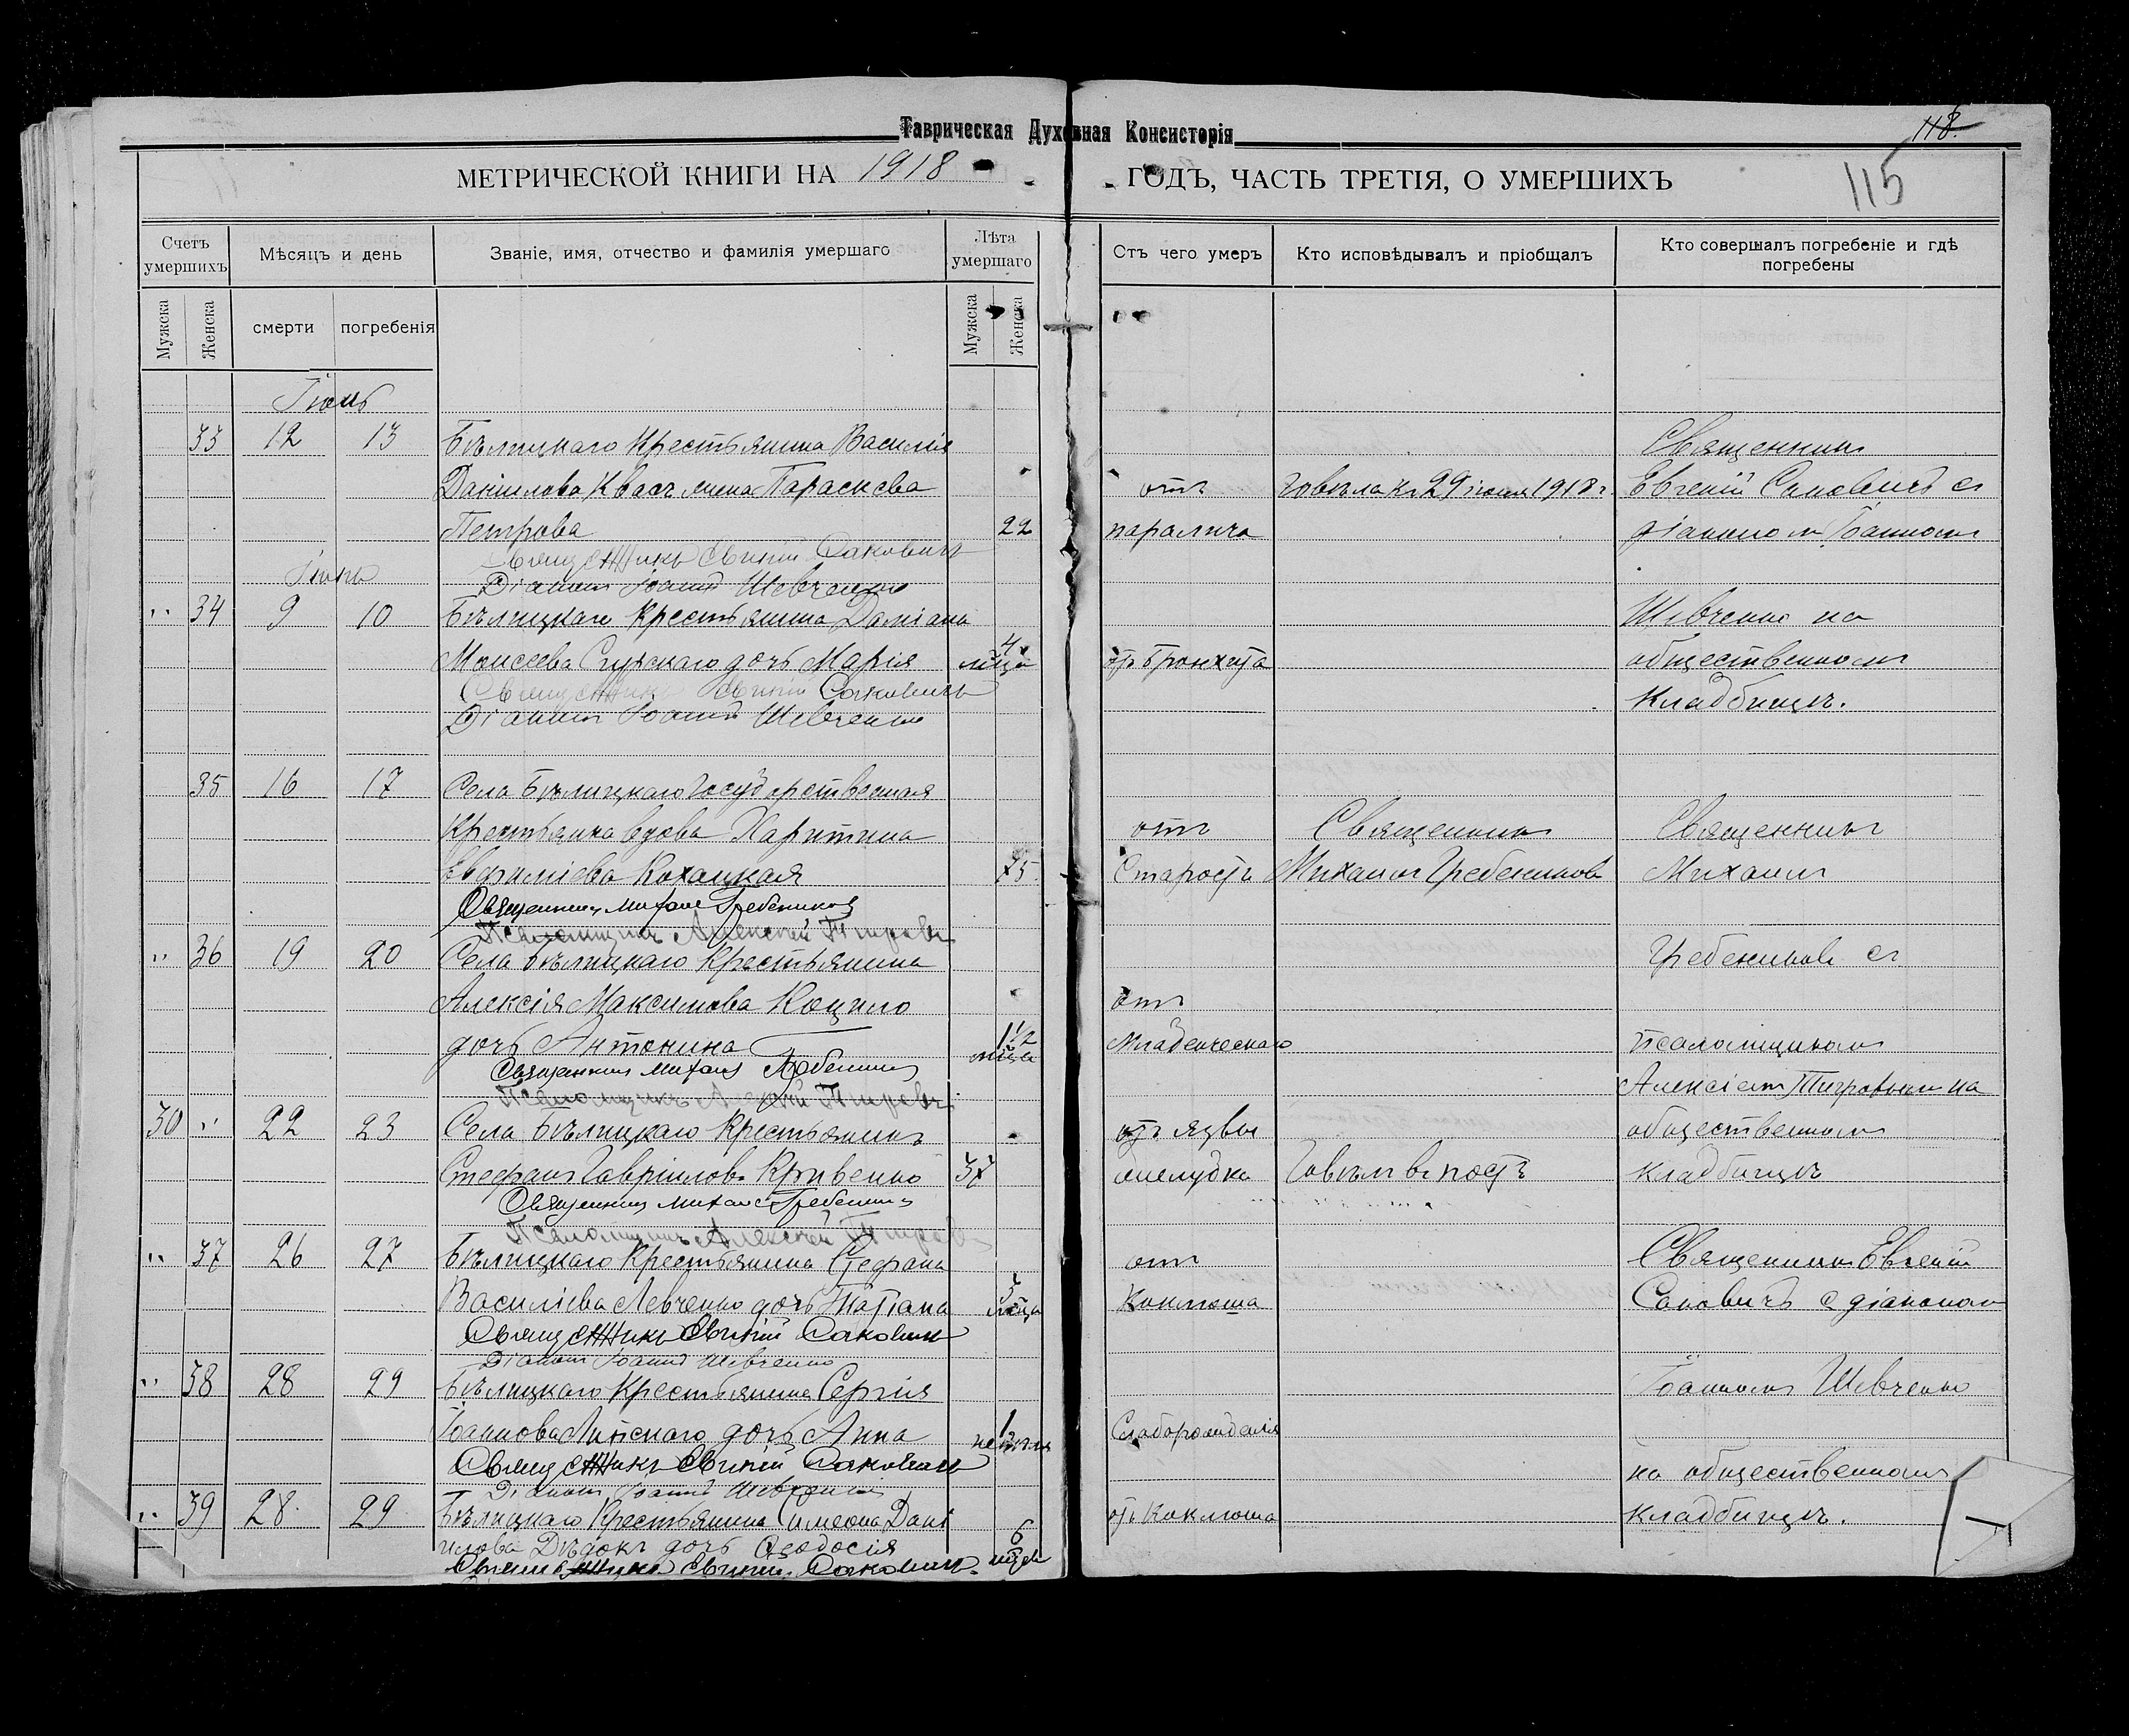 Таврическая Духовная Консисторія
118.
115
МЕТРИЧЕСКОЙ КНИГИ НА 1918
ГОДЪ, ЧАСТЬ ТРЕТІЯ, О УМЕРШИХЪ
Счетъ умершихъ
Мѣсяцъ и день
Званіе, имя, отчество и фамилія умершаго
Лѣта умершаго
Отъ чего умеръ
Кто исповѣдывалъ и пріобщалъ
Кто совершалъ погребеніе и гдѣ погребены
Мужска Женска смерти погребенія Мужска Женска
33 12 13 Бѣлицкаго Крестьянина Василія Священникъ
Даніилова Квас жена Параскева отъ говѣла къ 29 іюня 1918 г. Евгеній Саковичъ съ
Петрова 22 паралича діакономъ Іоанномъ
Священникъ Евгеній Саковичъ
Діаконъ Іоаннъ Шевченко
" 34 9 10 Бѣлицкаго Крестьянина Даміана Шевченко на
Моисеева дочь Марія 4 мѣца отъ бронхита общественномъ
Священникъ Евгеній Саковичъ кладбищѣ.
Діаконъ Іоаннъ Шевченко
35 16 17 Села Бѣлицкаго Государственная
Крестьянка вдова Харитина отъ Священникъ Священникъ
Евфиміева Кохацкая 75 Старости Михаилъ Гребениковъ Михаилъ
Священникъ Михаилъ Гребениковъ
Псаломщикъ Алексѣй
" 36 19 20 Села Бѣлицкаго Крестьянина Гребениковъ съ
Алексія Максимова Коцило отъ
дочь Антонина 1½ мѣца Младенческаго псаломщикомъ
Священникъ Михаилъ Гребениковъ Алексіемъ на
Псаломщикъ Алексѣй
30 " 22 23 Села Бѣлицкаго Крестьянинъ отъ язвы общественномъ
Стефанъ Гавріиловъ Кривенко 37 желудка Говѣлъ въ постъ кладбищѣ
Священникъ Михаилъ Гребениковъ
Псаломщикъ Алексѣй
" 37 26 27 Бѣлицкаго Крестьянина Стефана отъ Священникъ Евгеній
Василіева Левченко дочь Татіана 3 мѣца Коклюша Саковичъ съ діакономъ
Священникъ Евгеній Саковичъ
Діаконъ Іоаннъ Шевченко
" 38 28 29 Бѣлицкаго Крестьянина Сергія Іоанномъ Шевченко
Іоаннова дочь Анна 1 недѣля
Священникъ Евгеній Саковичъ на общественномъ
Діаконъ Іоаннъ Шевченко
" 39 28 29 Бѣлицкаго Крестьянина Симеона Дані отъ Коклюша кладбищѣ.
илова Дѣдокъ дочь Ѳеодосія 6 мѣцев
Священникъ Евгеній Саковичъ